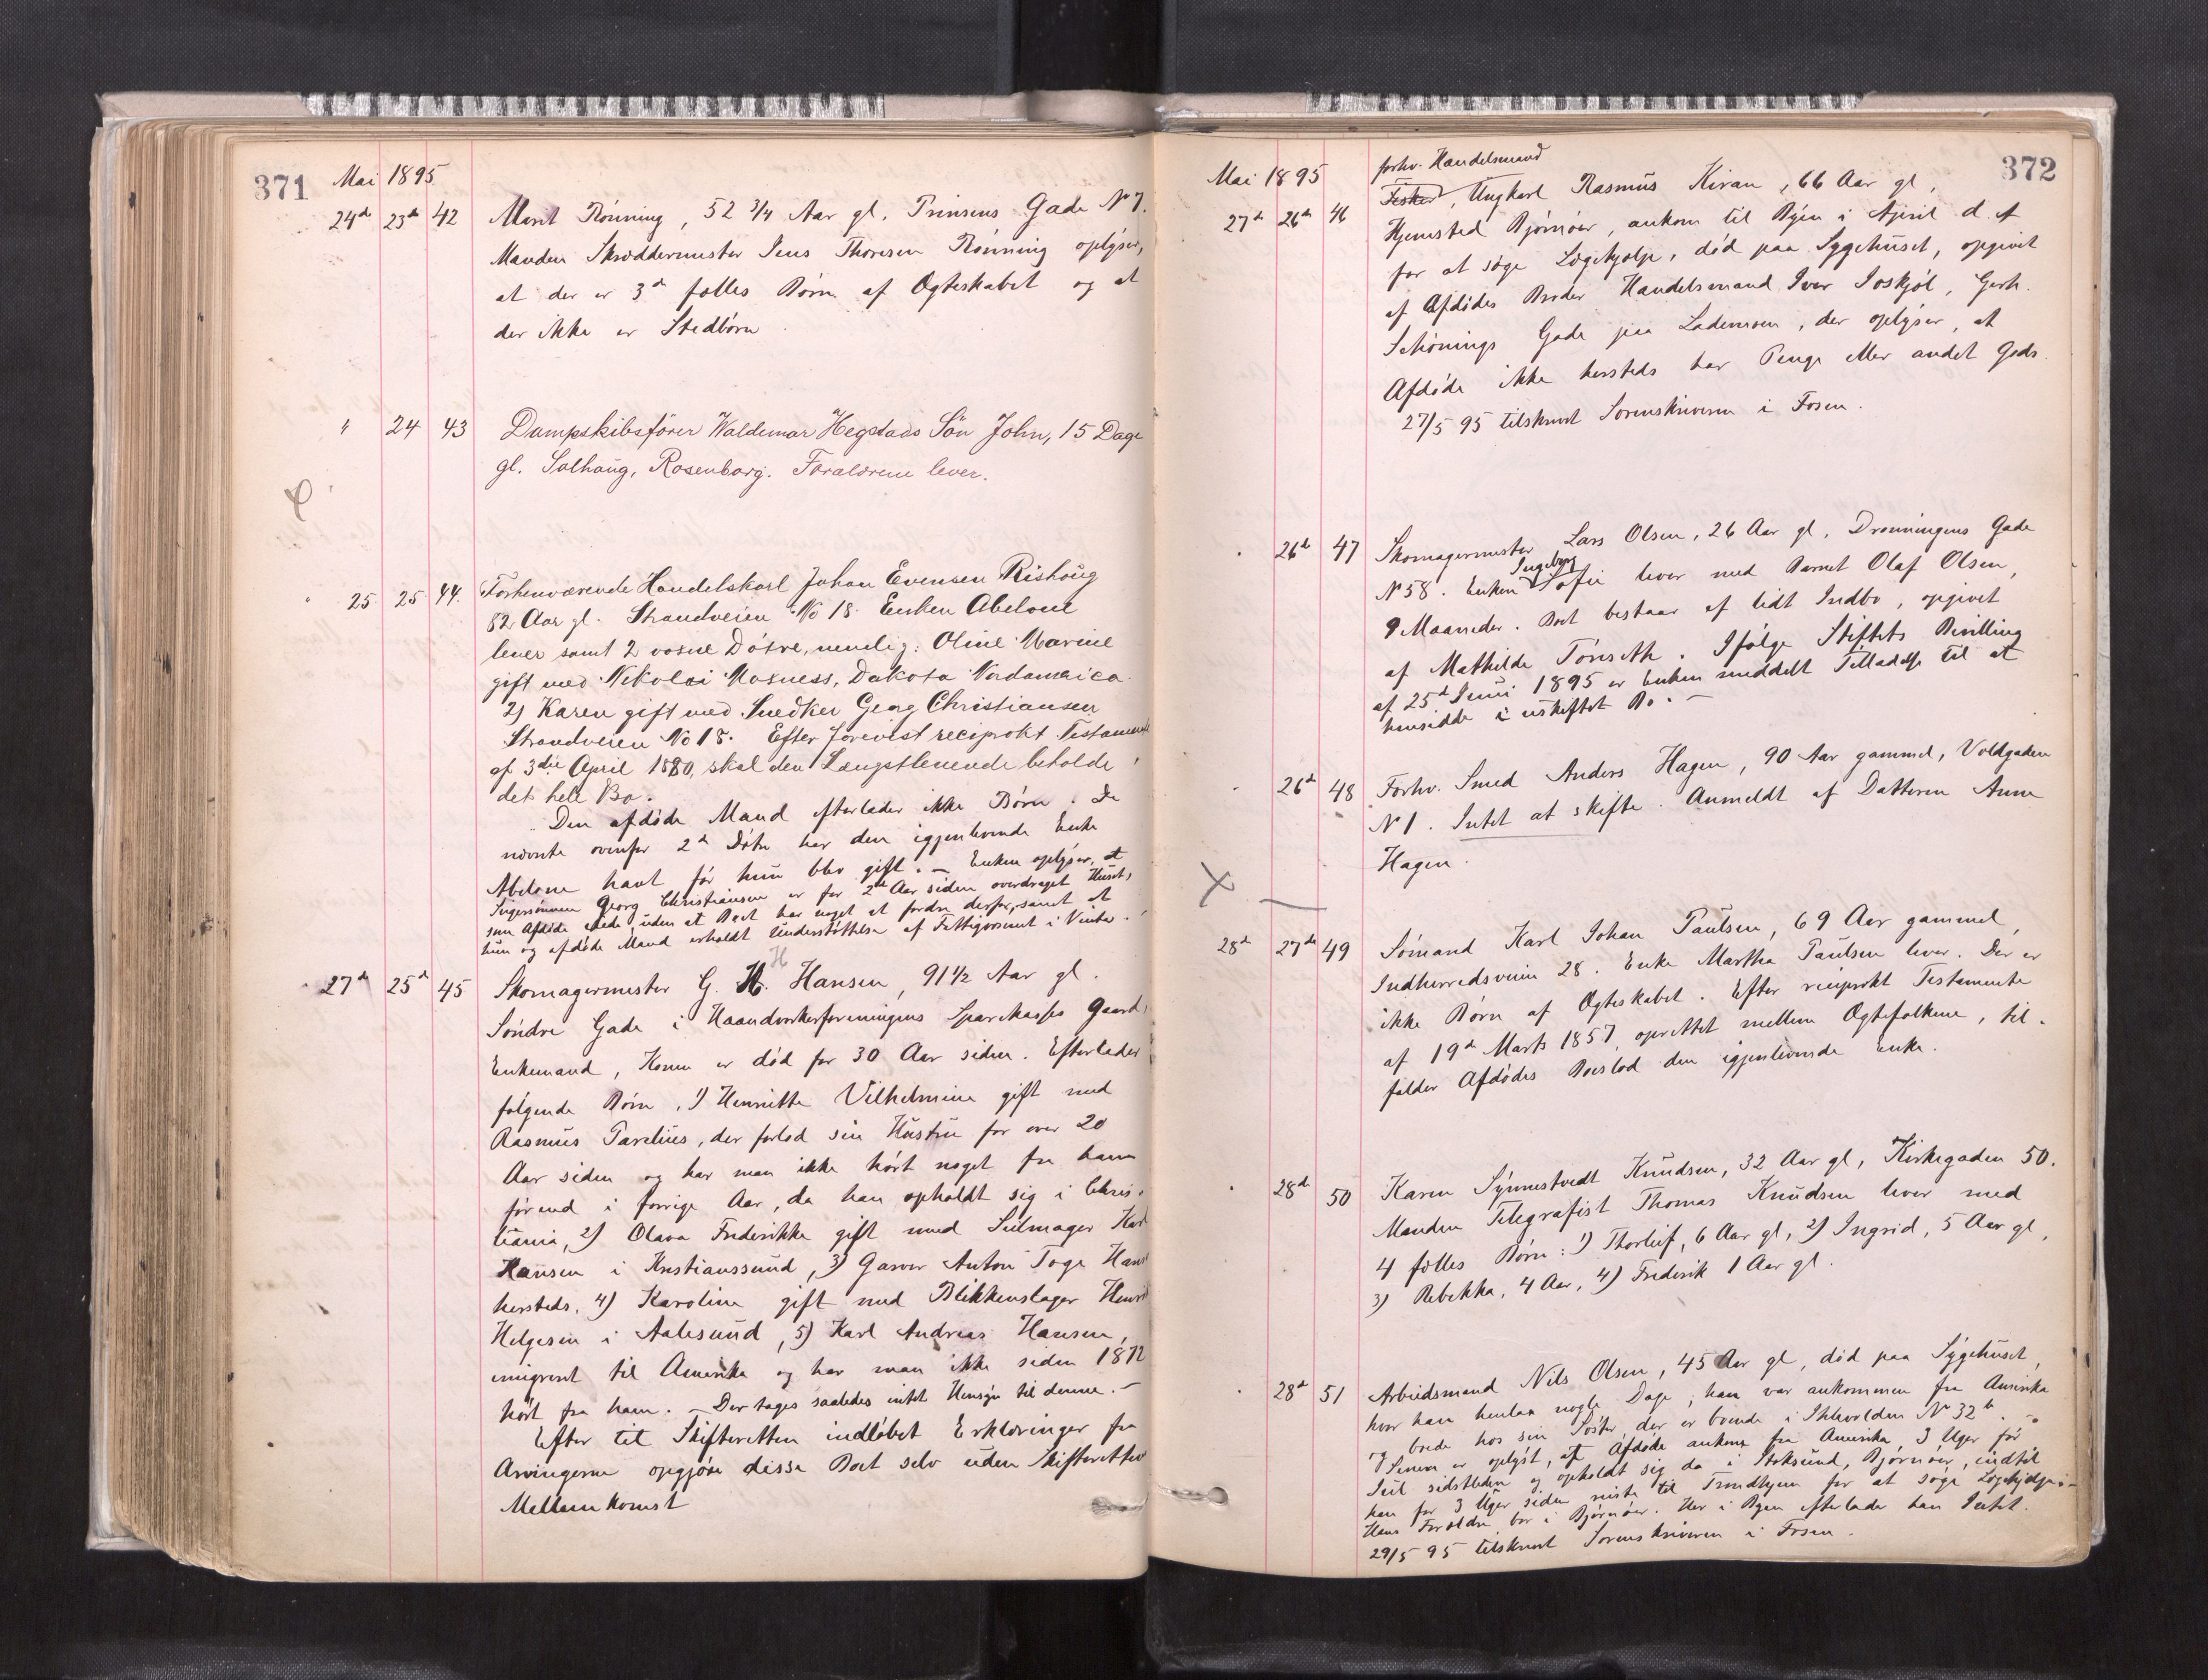 371
Mai 1895
24de 23de 42 Marit Rönning, 52 3/4 Aar gl. Prinsens Gade No 7.
Manden Skræddermester Jens Thoresen Rönning oplyser,
at der er 3de fælles Börn af Ægteskabet og at
der ikke er Stedbörn.
" 24 43 Dampskibsförer Waldemar Hegstads Sön John, 15 Dage
gl. Solhaug, Rosenborg. Forældrene lever.
" 25 25 44. Forhenværende Handelskarl Johan Evensen Rishoug
82 Aar gl. Strandveien No 18. Enken Abelone
lever samt 2 voxne Dötre, nemlig: Oline Marine
gift med Nikolai Moxness, Dakota Nordamerica.
2) Karen gift med Snedker Georg Christiansen
Strandveien No 18. Efter forevist reciprokt Testamente
af 3die April 1880, skal den Længstlevende beholde
det hele Bo.
Den afdöde Mand efterlader ikke Börn. De
nævnte ovenfor 2de Dötre har den igjenlevende Enke
Abelone havt för hun blev gift. – Enken oplyser, at
Svigersönnen Georg Christiansen er for 2de Aar siden overdraget Huset,
som Afdöde eiede, uden at Boet har noget at fordre derfor, samt at
hun og afdöde Mand erholdt Understöttelse af Fattigvæsenet i Vinter.
27de 25de 45 Skomagermester G. H. Hansen, 91 1/2 Aar gl.
Söndre Gade i Haandværkerforeningens Sparekasses Gaard,
Enkemand, Konen er död for 30 Aar siden. Efterlader
fölgende Börn, 1) Henriette Vilhelmine gift med
Rasmus Parelius, der forlod sin Hustru for over 20
Aar siden og har man ikke hört noget fra ham
förend i forrige Aar, da han opholdt sig i Chris-
tiania, 2) Olava Frederikke gift med Seilmager Karl
Hansen i Kristianssund, 3) Garver Anton Toge Hans
hersteds. 4) Karoline gift med Blikkenslager Henrik
Helgesen i Aalesund, 5) Karl Andreas Hansen,
emigreret til Amerika og har man ikke siden 1872
hört fra ham. – Der tages saaledes intet Hensyn til denne. –
Efter til Skifteretten indlöbet Erklæringer fra
Arvingerne opgjöre disse Boet selv uden Skifteretten
Mellemkomst
372
Mai 1895
forhv. Handelsmand
27de 26de 46 Fisker, Ungkarl Rasmus Kiran, 66 Aar gl,
Hjemsted Björnöer, ankom til Byen i April d. A
for at söge Lægehjælp, död paa Sygehuset, opgivet
af Afdödes Broder Handelsmand Iver Joskjöl, Gerh.
Schönings Gade paa Lademoen, der oplyser, at
Afdöde ikke hersteds har Penge eller andet Gods.
27/5 95 tilskrevet Sorenskriveren i Fosen.
26de 47 Skomagermester Lars Olsen, 26 Aar gl. Dronningens Gade
No 58. Enken Ingeborg Sofie lever med Barnet Olaf Olsen,
9 Maaneder. Boet bestaar af lidt Indbo, opgivet
af Mathilde Tönseth. Ifölge Stiftets Bevilling
af 25de Juni 1895 er Enken meddelt Tilladelse til at
hensidde i uskiftet Bo. –
26de 48 Forhv. Smed Anders Hagen, 90 Aar gammel, Voldgaden
No 1. Intet at skifte. Anmeldt af Datteren Anne
Hagen.
28de 27de 49 Sömand Karl Johan Paulsen, 69 Aar gammel,
Indherredsveien 28. Enke Martha Paulsen lever. Der er
ikke Börn af Ægteskabet. Efter reciprokt Testamente
af 19de Marts 1857, oprettet mellem Ægtefolkene, til-
falder Afdödes Boeslod den igjenlevende Enke.
28de 50 Karen Synnestvedt Knudsen, 32 Aar gl, Kirkegaden 50.
Manden Telegrafist Thomas Knudsen lever med
4 fælles Börn: 1) Thorleif, 6 Aar gl, 2) Ingrid, 5 Aar gl,
3) Rebekka, 4 Aar, 4) Frederik 1 Aar gl.
28de 51 Arbeidsmand Nils Olsen, 45 Aar gl, död paa Sygehuset,
hvor han henlaa nogle Dage, han var ankommen fra Amerika
og boede hos sin Söster der er boende i Ihlevolden No 32 b. –
Senere er oplyst, at Afdöde ankom fra Amerika 3 Uger för
Juil sidstleden og opholdt sig da i Stoksund, Björnöer, indtil
han for 3 Uger siden reiste til Trondhjem for at söge Lægehjælp. –
Hans Forældre bor i Björnöer. Her i Byen efterlader han Intet.
29/5 95 tilskrevet Sorenskriveren i Fosen.